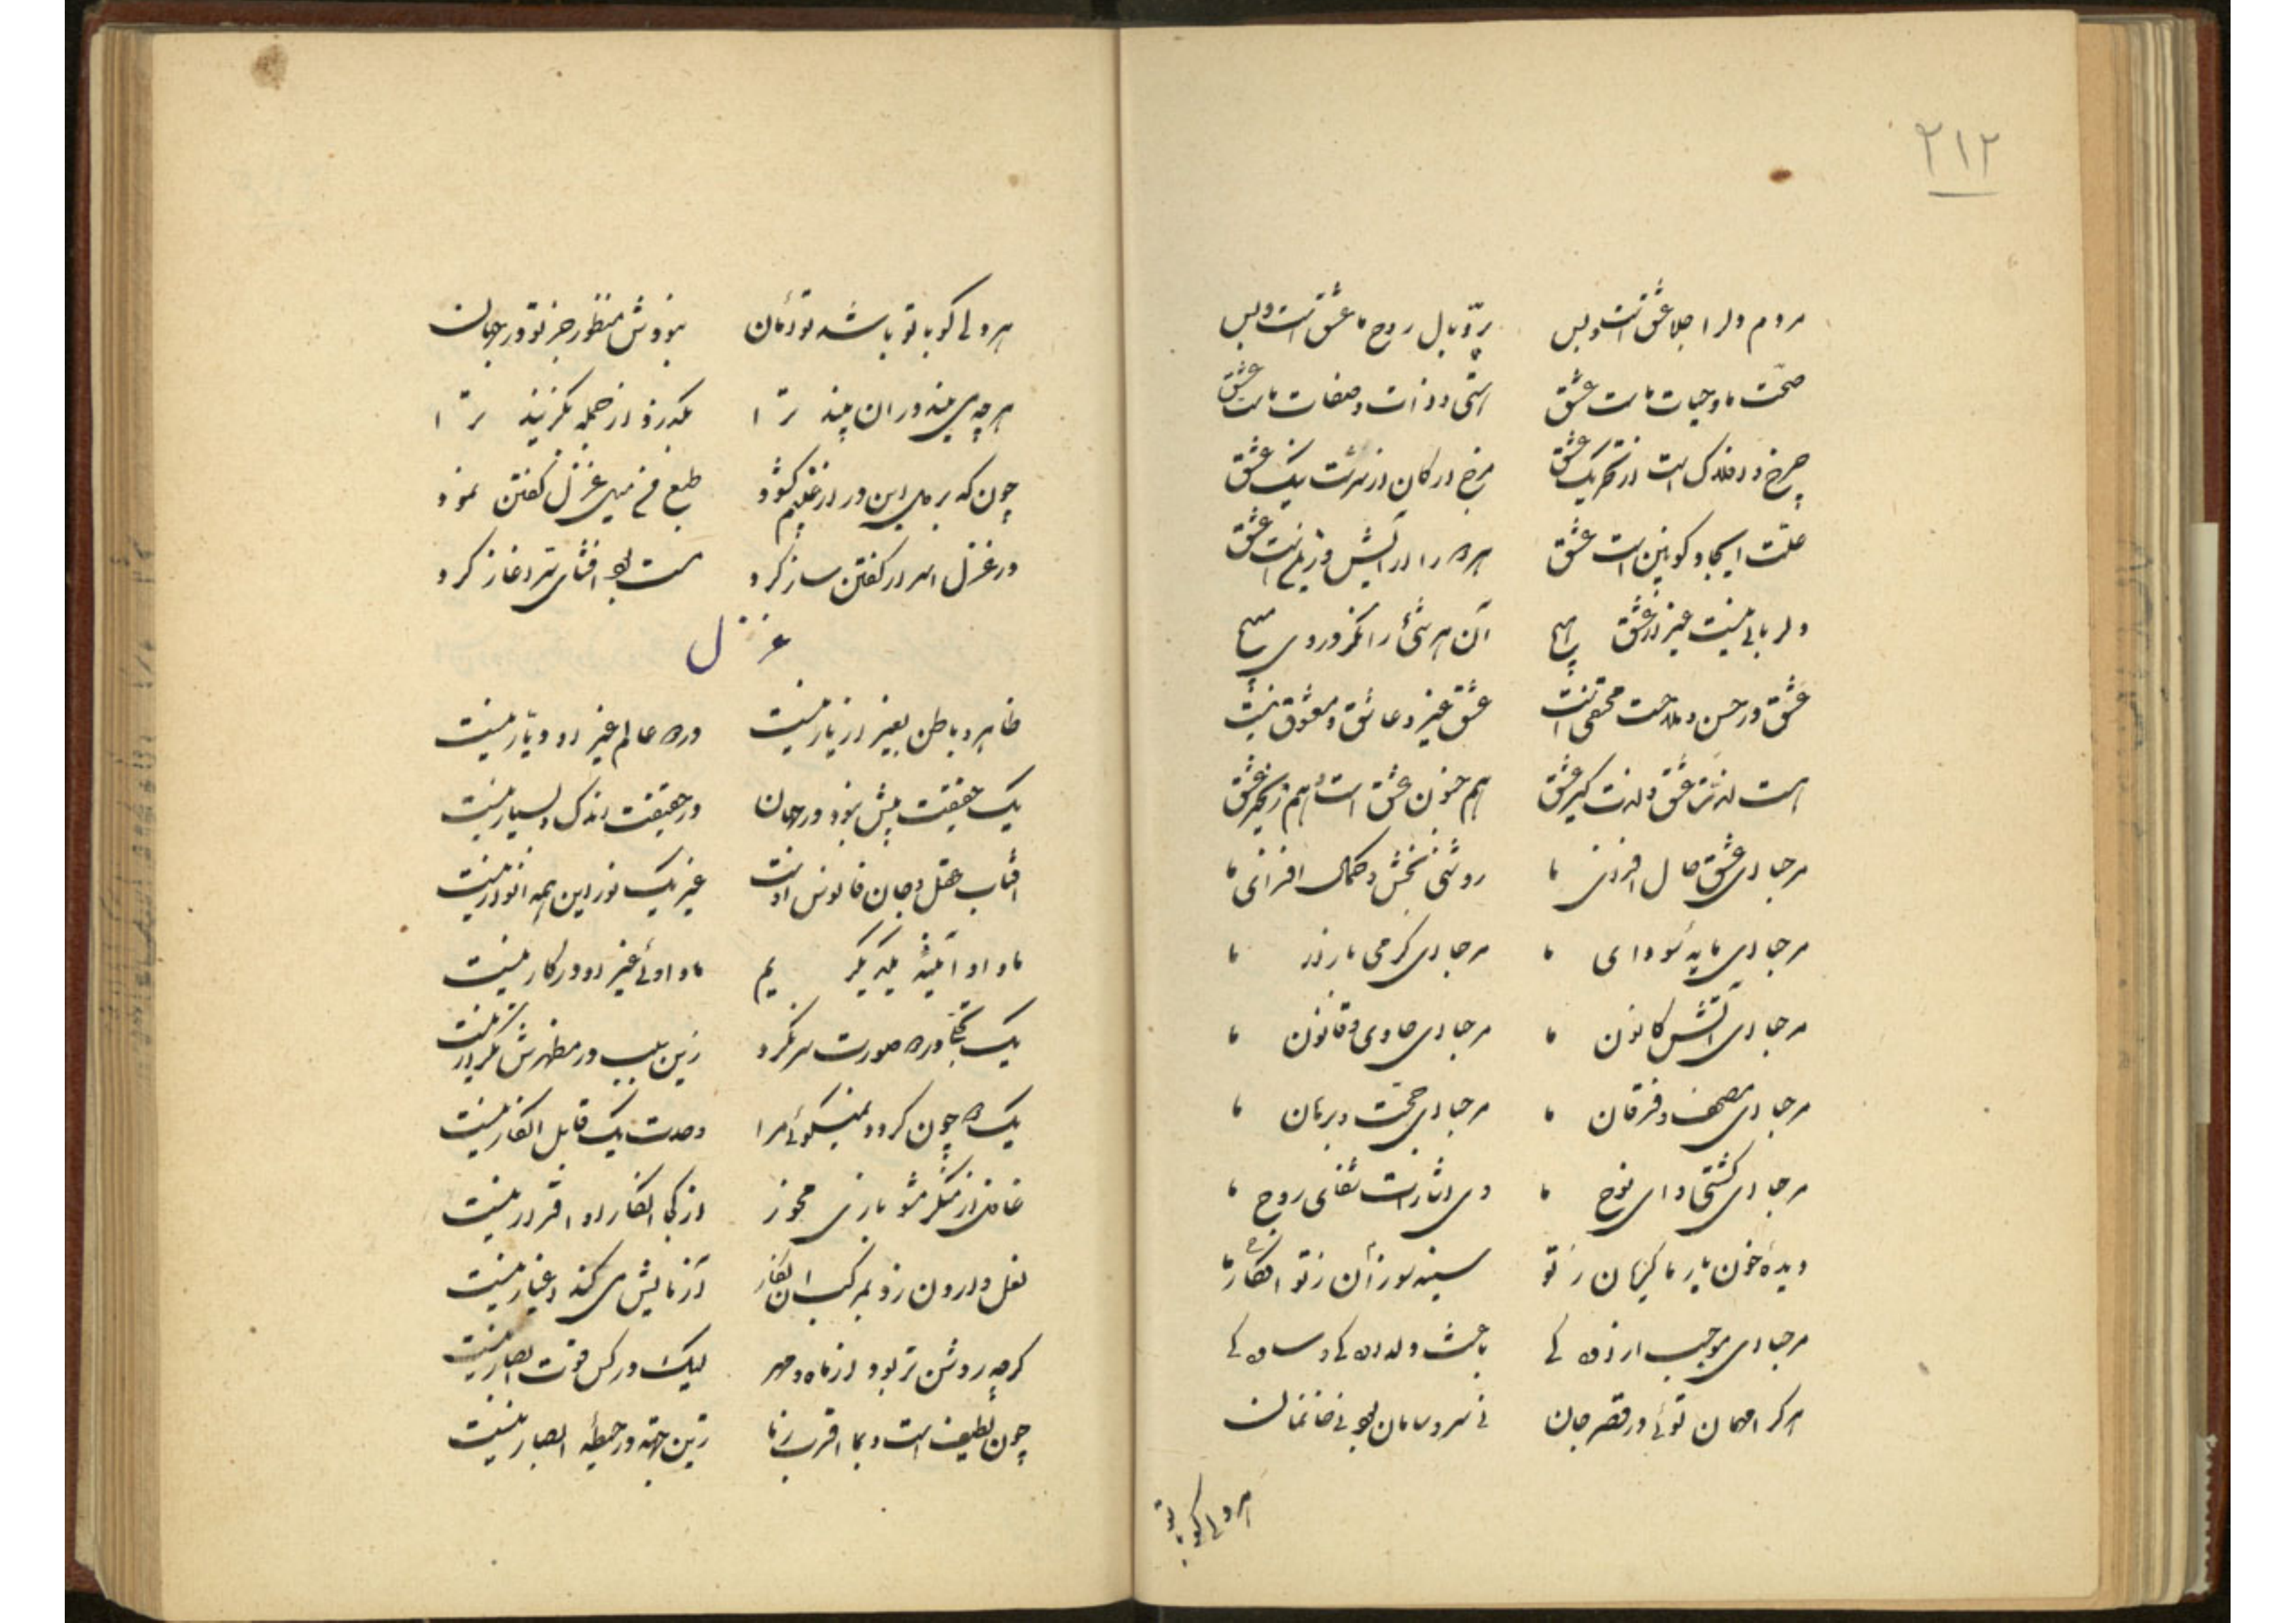 ۲۱۲
مردم دلرا جلا عشق است و بس پرّ و بال روح ما عشق است و بس
صحّت ما و حیات ماست عشق هستی و ذات و صفات ماست عشق
چرخ در افلاک است از تحریک عشق چرخ ارکان از عشق
علّت ایجاد کونین است عشق هر را آرایش و زین است عشق
دلربائی نیست غیر از عشق هیچ آن هر شئ را نگر وز وی مپیچ
عشق در حسن و ملاحت مختفی است عشق غیر و عاشق و معشوق نیست
هست لذّت عشق و لذت گیر عشق هم جنون عشق است و هم زنجیر عشق
مرحبا ای عشق حال افزای ما روشنی بخش و کمال افزای ما
مرحبا ای مایه سودای ما مرحبا ای گرمی بازار ما
مرحبا ای آتش کانون ما مرحبا ای حاوی و قانون ما
مرحبا ای مصحف و فرقان ما مرحبا ای حجّت و برهان ما
مرحبا ای کشتی و ای نوح ما وی اشاراتت شفای روح ما
دیده خون بار ما گریان ز تو سینه سوزان ز تو
مرحبا ای موجب ای باعث ای
هر که را مهمان توئی در قصر جان بی سر و سامان بود بی خانمان
هر دلی کو با تو
هر دلی کو با تو باشد توأمان نبودش منظور جز تو در جهان
هر چه می بیند در آن بیند ترا بگذرد از جمله بگزیند ترا
چون که بر من این در از غیبم گشود طبع من میل غزل گفتن نمود
در غزل اسرار گفتن ساز کرد مست بود افشای سر آغاز کرد
غزل
ظاهر و باطن بغیر از یار نیست در عالم غیر او دیّار نیست
یک حقیقت بیش نبود در جهان در حقیقت اندک و بسیار نیست
آفتاب عقل و جان فانوس اوست غیر یک نور این همه انوار نیست
ما و او آئینه یکدیگریم ما و اوئی غیر او در کار نیست
یک تجلّی در دو صورت سر نکرد زین سبب در مظهرش تکرار نیست
یک چون گردد نمیگوئی مرا وحدت یک قابل انکار نیست
غافل از منکر مشو بازی مخور از کجا انکار او اقرار نیست
نعل وارون زد بمرکب آن نگار آزمایش می کند اغیار نیست
گرچه روشن تر بود از ماه و مهر لیک در کس قوّت ابصار نیست
چون لطیف است و بما اقرب ز ما زین جهة در حیطه ابصار نیست